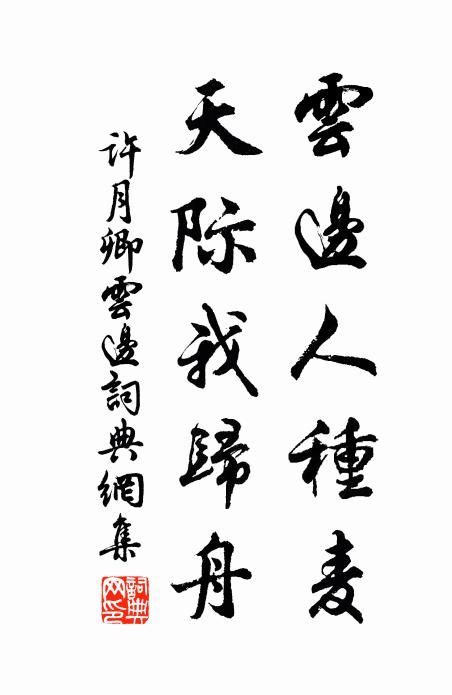 雲邊人種麦
天际我歸舟
許月卿雲邊詞典網集
詞典网印